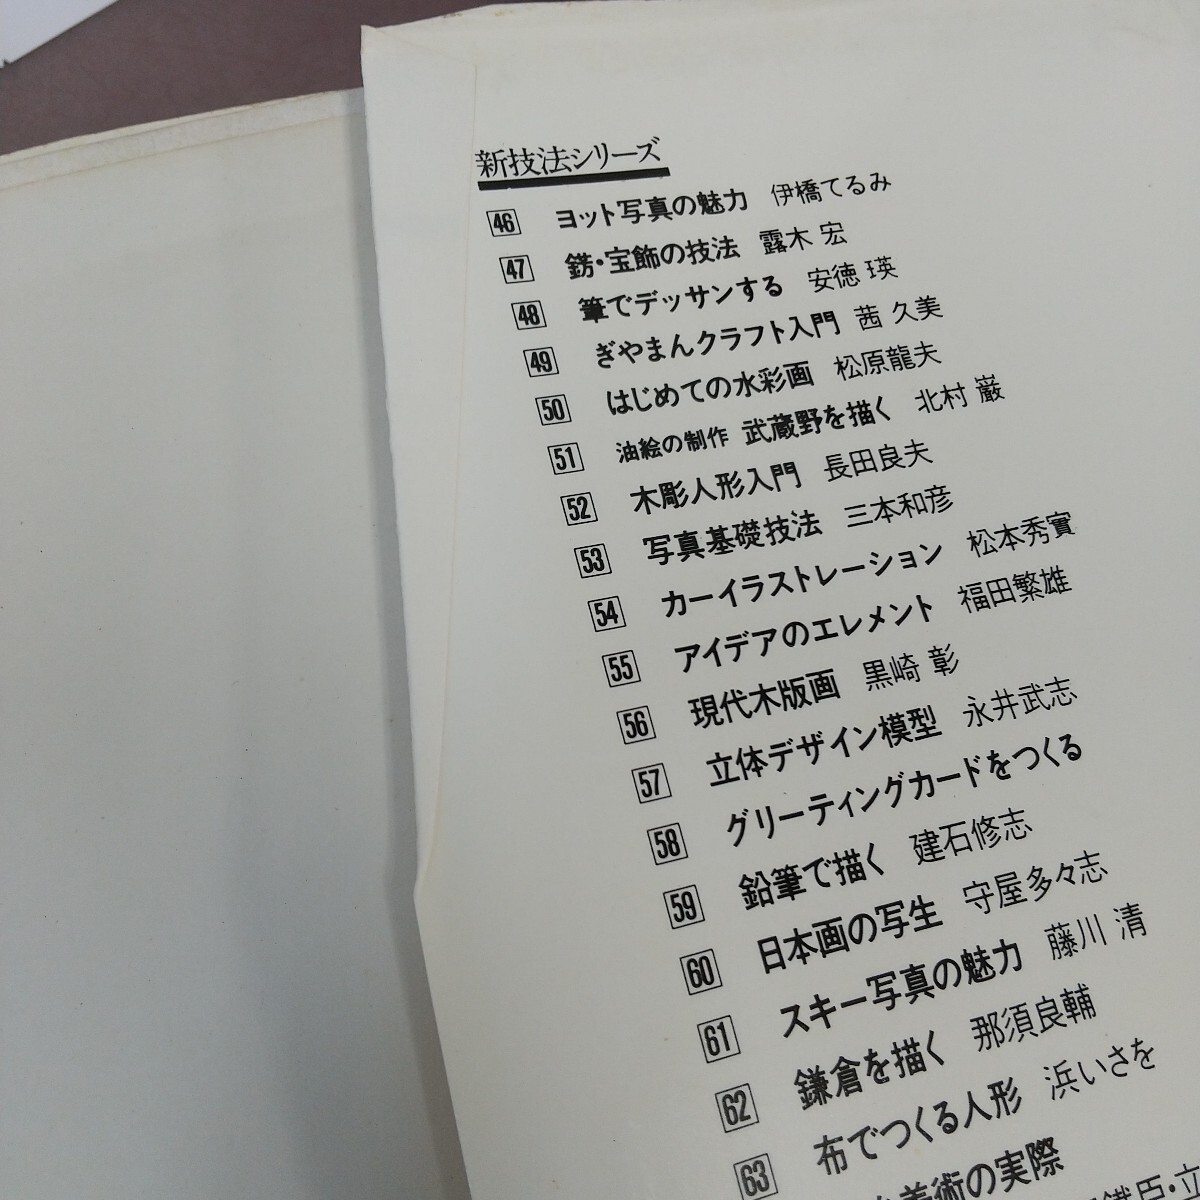 新技法シリーズ
46 ヨット写真の魅力 伊橋てるみ
47 錺・宝飾の技法 露木 宏
48 筆でデッサンする 安徳 瑛
49 ぎやまんクラフト入門 茜 久美
50 はじめての水彩画 松原龍夫
51 油絵の制作 武蔵野を描く 北村 巌
52 木彫人形入門 長田良夫
53 写真基礎技法 三本和彦
54 カーイラストレーション 松本秀實
55 アイデアのエレメント 福田繁雄
56 現代木版画 黒崎 彰
57 立体デザイン模型 永井武志
58 グリーティングカードをつくる
59 鉛筆で描く 建石修志
60 日本画の写生 守屋多々志
61 スキー写真の魅力 藤川 清
62 鎌倉を描く 那須良輔
63 布でつくる人形 浜いさを
美術の実際